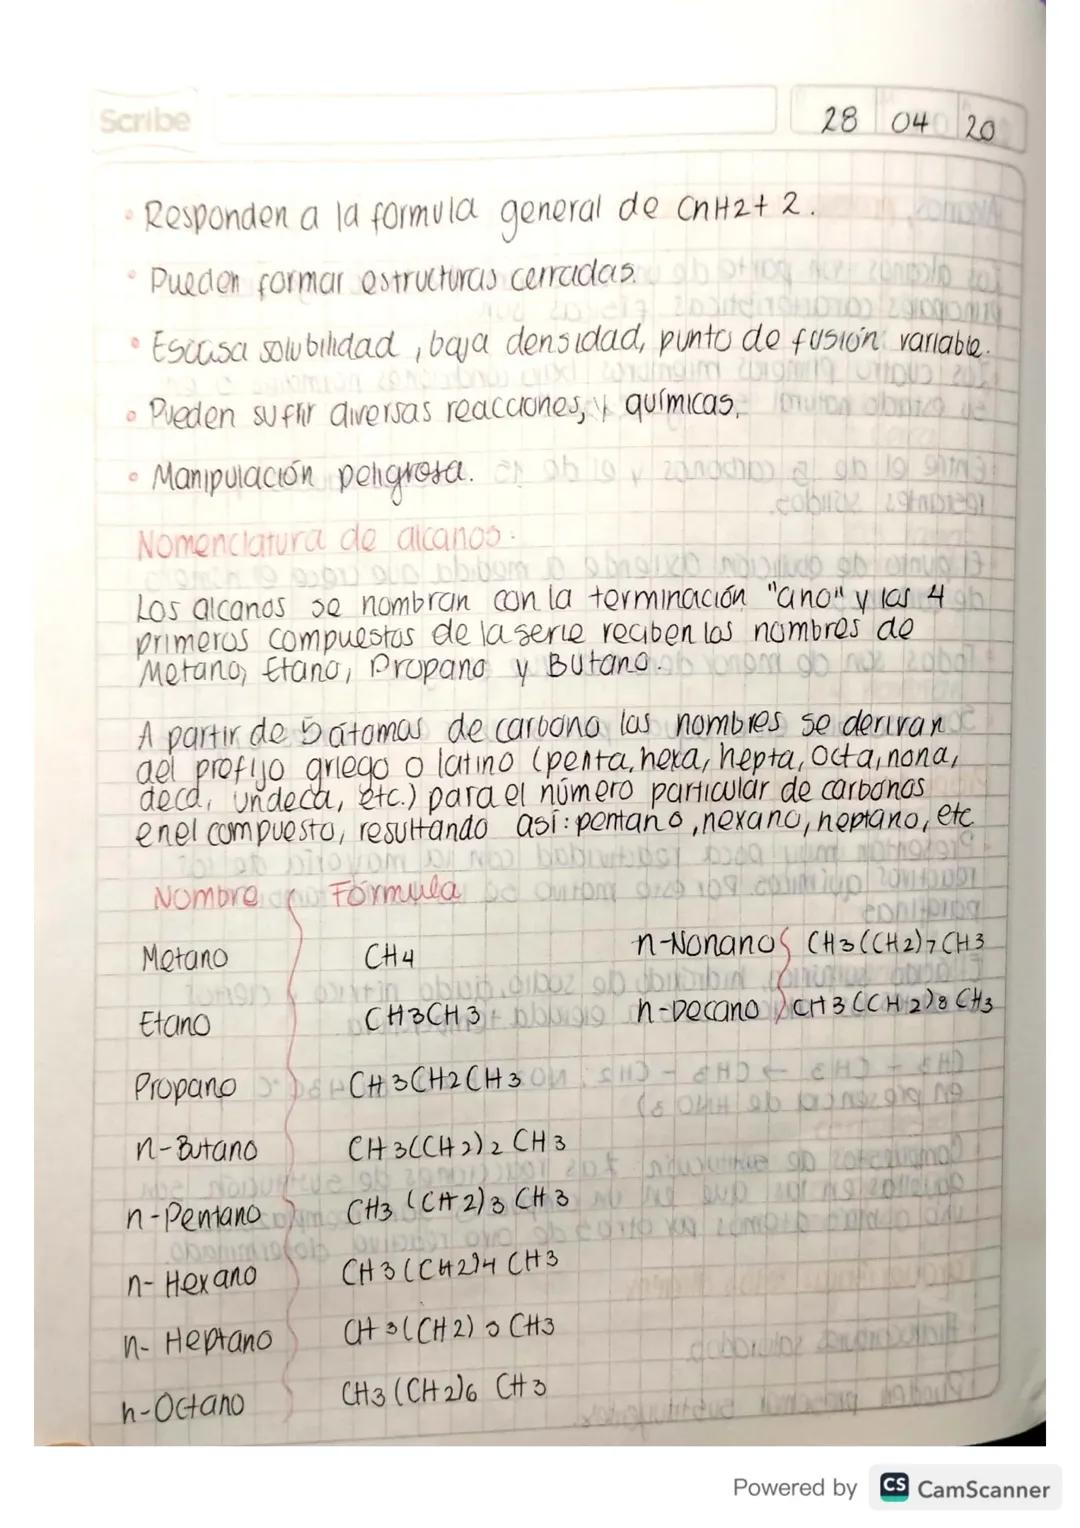 Scribe
28 04 20
• Responden a la formula general de CnH2+2.
• Pueden formar estructuras cerradas.
• Escasa solubilidad, baja densidad, punto de fusión variable.
• Pueden sufrir diversas reacciones, y químicas.
• Manipulación peligrosa.
Nomenclatura de alcanos.
Los alcanos se nombran con la terminación "ano" y las 4
primeros compuestos de la serie reciben los nombres de
Metano, Etano, Propano y Butano.
A partir de 5 átomos de carbono los nombres se derivan
del prefijo griego o latino (penta, hexa, hepta, octa, nona,
deca, undeca, etc.) para el número particular de carbonos
en el compuesto, resultando así: pentano, hexano, heptano, etc
Nombre Fórmula
Metano CH4 n-Nonano CH3(CH2)7CH3
Etano CH3CH3 n-Decano CH3(CH2)8CH3
Propano CH3CH2CH3
n-Butano CH3(CH2)2CH3
n-Pentano CH3(CH2)3CH3
n-Hexano CH3(CH2)4CH3
n-Heptano CH3(CH2)5CH3
n-Octano CH3(CH2)6CH3
Powered by CS CamScanner